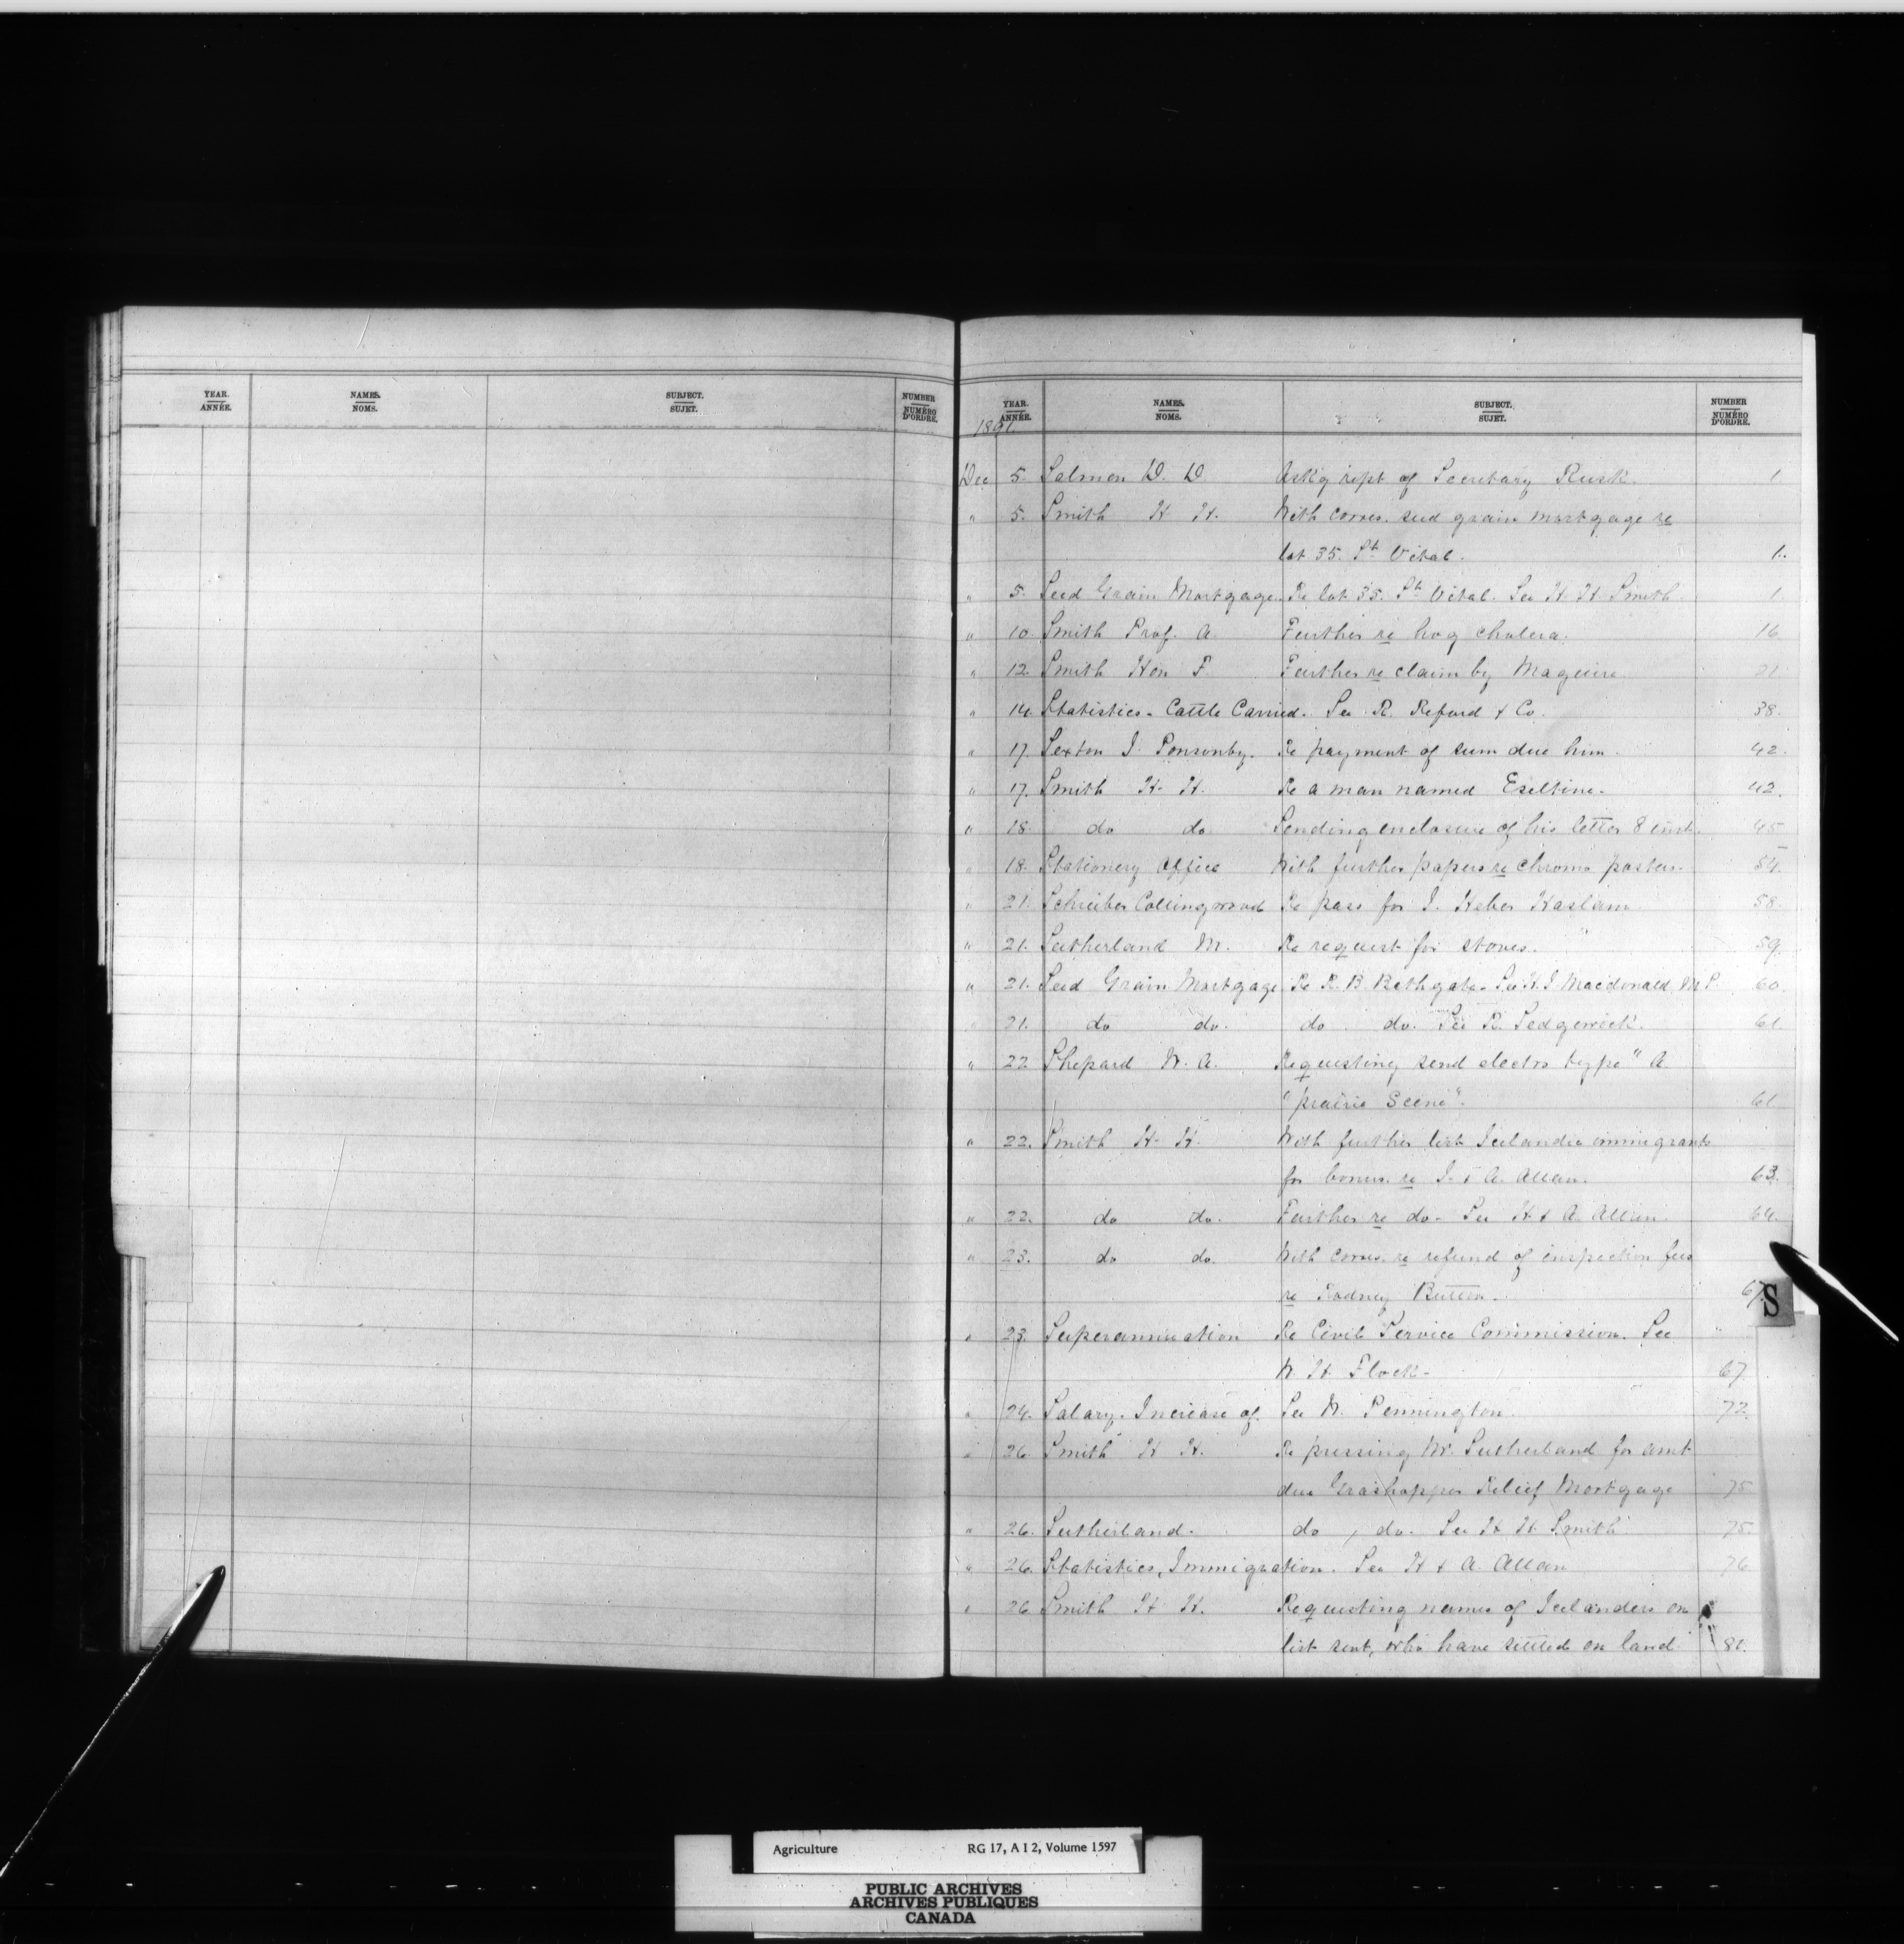 YEAR. NAMES. SUBJECT. NUMBER
ANNÉE. NOMS. SUJET. NUMÉRO D'ORDRE.
YEAR. NAMES. SUBJECT. NUMBER
ANNÉE. NOMS. SUJET. NUMÉRO D'ORDRE.
1891
Dec 5. Salmon D. D. Ask'g rept of Secretary Rusk. 1.
" 5. Smith H. H. With corres. seed grain mortgage re
lot 35. St. Vital. 1.
" 5. Seed Grain Mortgage. Re lot 35. St. Vital. See H. H. Smith. 1.
" 10. Smith Prof. A. Further re hog cholera. 16.
" 12. Smith Hon F. Further re claim by Maguire. 21.
" 14. Statistics - Cattle Carried. See R. Reford & Co. 38.
" 17. Sexton J. Ponsonby. Re payment of sum due him. 42.
" 17. Smith H. H. Re a man named Eseltine. 42.
" 18. do do. Sending enclosure of his letter 8 inst. 45
" 18. Stationery Office With further papers re chromo posters. 54.
" 21. Schreiber Collingwood Re pass for J. Heber Haslam. 58.
" 21. Sutherland M. Re request for stoves. 59.
" 21. Seed Grain Mortgage Re R. B. Bathgate. See H. J. Macdonald, M P. 60.
" 21. do do. do do. See R. Sedgewick. 61.
" 22 Shepard W. A. Requesting send electro type "A
"prairie Scene". 61
" 22. Smith H. H. With further list Icelandic immigrants
for bonus. re H. & A. Allan. 63.
" 22. do do. Further re do. See H & A. Allan. 64.
" 23. do do. With corres. re refund of inspection fees
re Rodney Button. 67.
S
" 23. Superannuation Re Civil Service Commission. See
W. H. Flock. 67
" 24. Salary. Increase of. See W. Pennington. 72.
" 26 Smith H H. Re pressing Mr. Sutherland for amt
due Grasshopper Relief Mortgage 75
" 26. Sutherland. do do. See H H Smith 75.
" 26. Statistics, Immigration. See H & A. Allan 76
" 26 Smith H H. Requesting names of Icelanders on
list sent, who have settled on land. 81.
Agriculture RG 17, A I 2, Volume 1597
PUBLIC ARCHIVES
ARCHIVES PUBLIQUES
CANADA